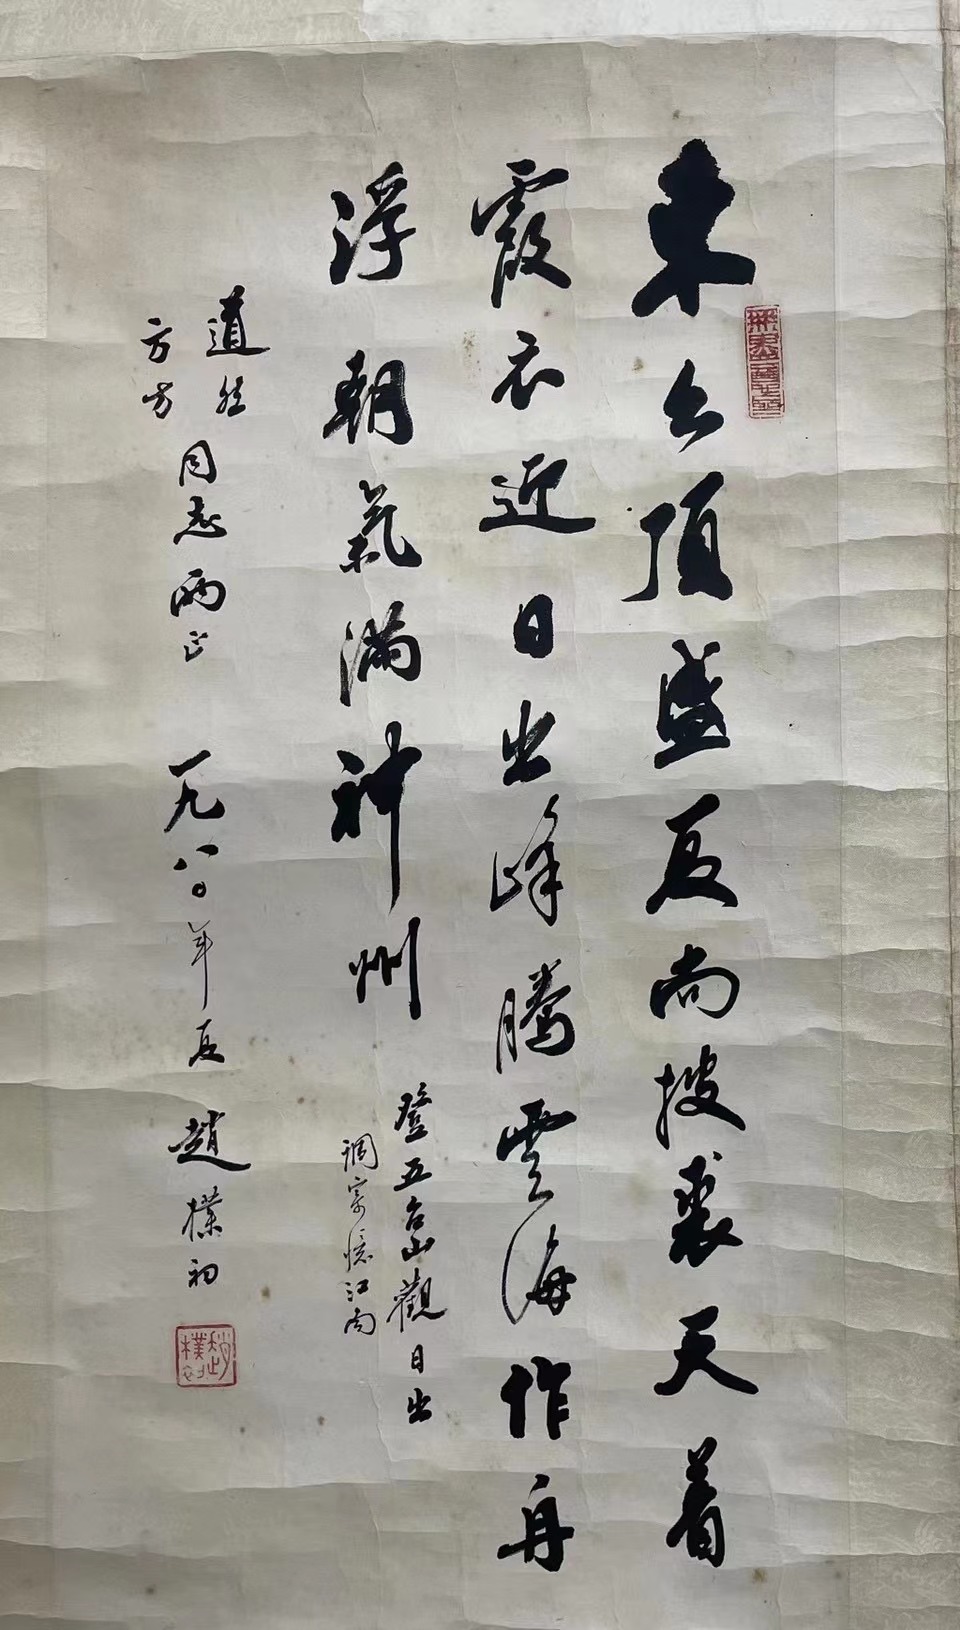 东台顶盛夏尚披裘天着
霞衣近日出峰腾云海作舟
浮朝氣满神州
登五台山觀日出
调寄憶江南
道
方方
同志两正
一九八〇年夏
趙樸初
趙樸初